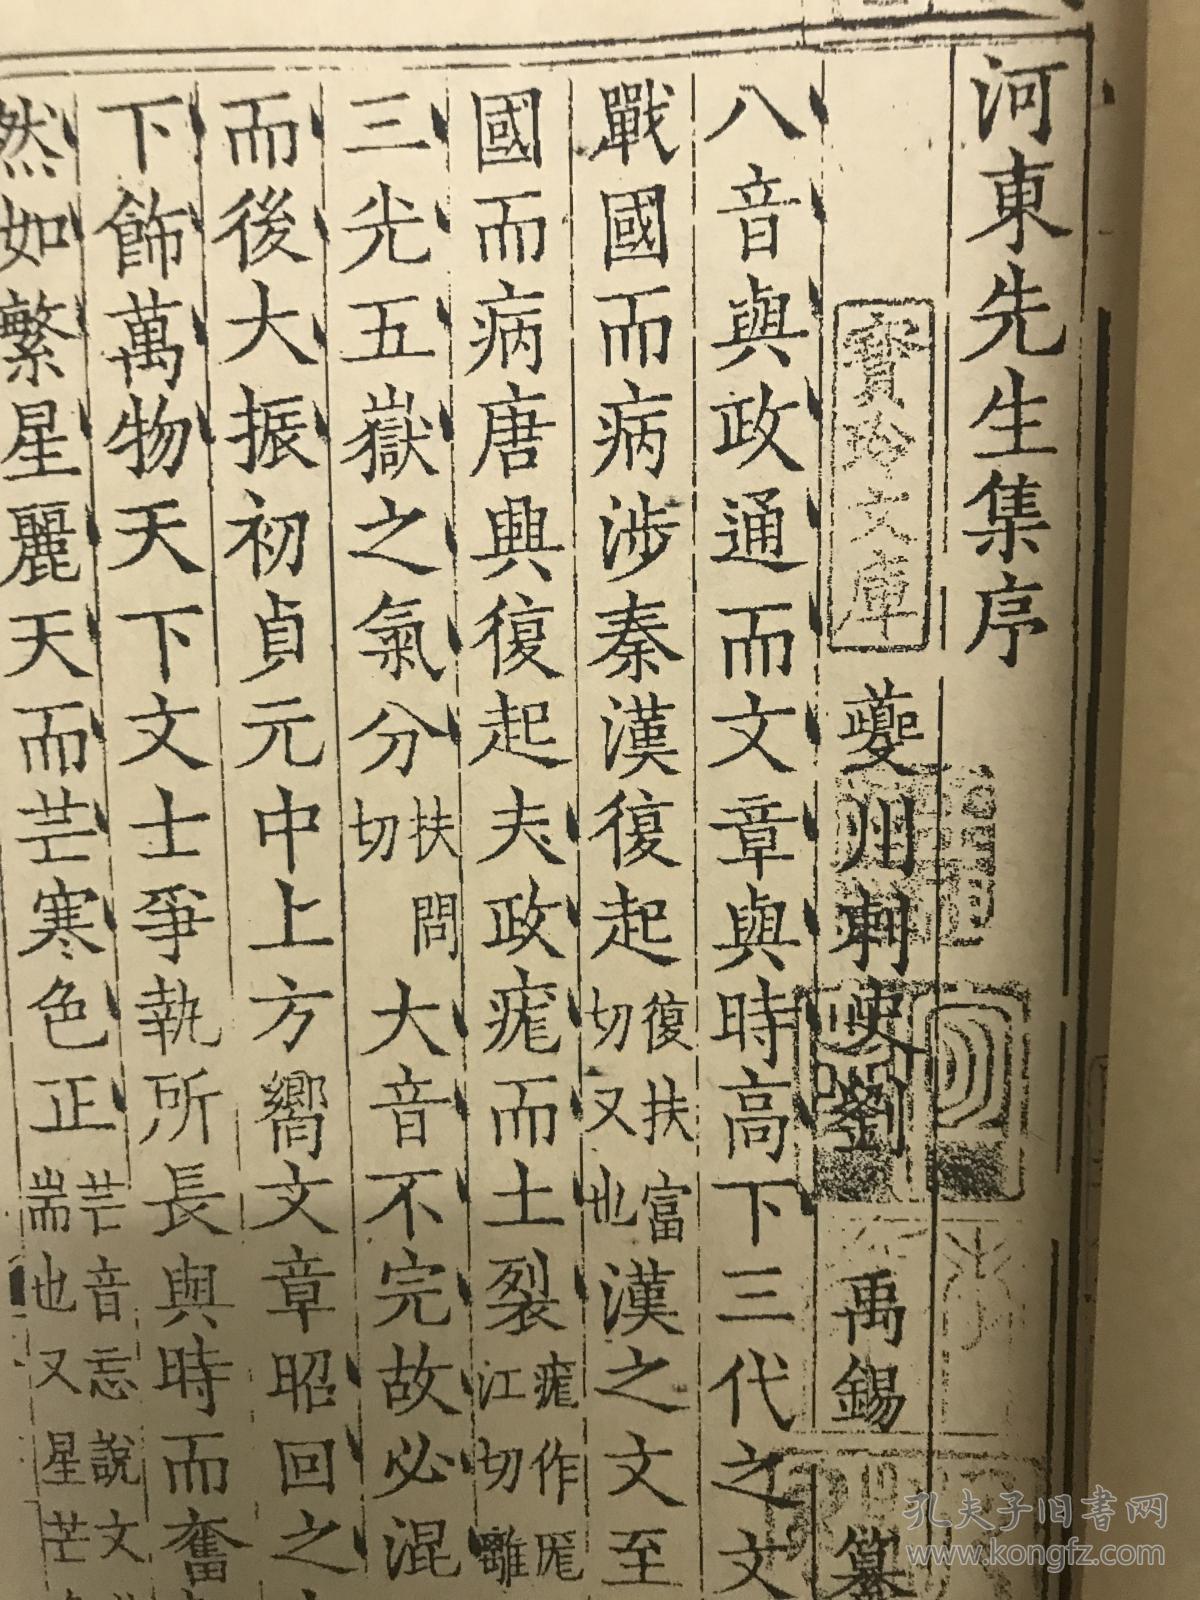 河東先生集序
夔州刺史劉禹錫纂
八音與政通而文章與時高下三代之文
戰國而病涉秦漢復起復扶富切又也漢之文至
國而病唐興復起夫政痝而土裂痝作厖離江切
三光五嶽之氣分扶問切大音不完故必混
而後大振初貞元中上方嚮文章昭回之
下飾萬物天下文士爭執所長與時而奮
然如繁星麗天而芒寒色正芒音忘說文耑也又星芒
寶珍文庫
孔夫子旧书网
www.kongfz.com